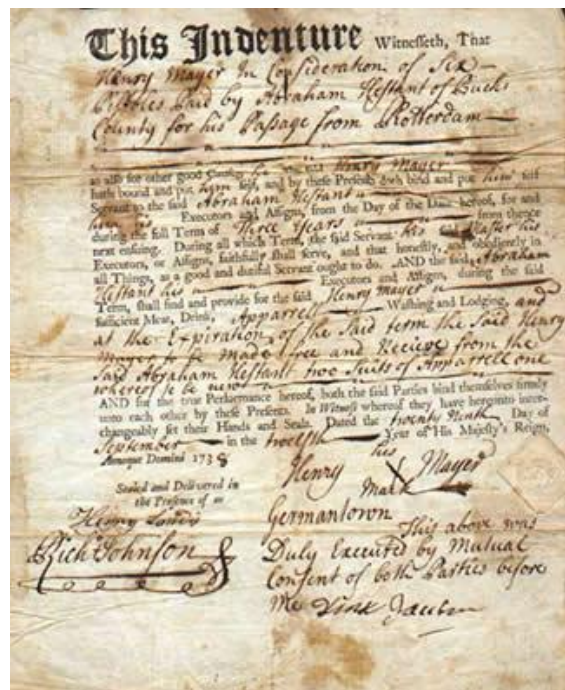 This Indenture Witnesseth, That
Henry Mayer In Consideration of Six
Pistoles paid by Abraham Hestant of Bucks
County for his Passage from Rotterdam
as also for other good Causes, he the said Henry Mayer
hath bound and put him self, and by these Presents doth bind and put him self
Servant to the said Abraham Hestant
his Executors and Assigns, from the Day of the Date hereof, for and
during the full Term of Three Years from thence
next ensuing. During all which Term, the said Servant his said Master his
Executors, or Assigns, faithfully shall serve, and that honestly, and obediently in
all Things, as a good and dutiful Servant ought to do. AND the said Abraham
Hestant his Executors and Assigns, during the said
Term, shall find and provide for the said Henry Mayer
sufficient Meat, Drink, Apparrell Washing and Lodging, and
at the Expiration of the said term the said Henry
Mayer to be made free and Recieve from the
said Abraham Hestant two Suits of Apparrell one
whereof to be new
AND for the true Performance hereof, both the said Parties bind themselves firmly
unto each other by these Presents. In Witness whereof they have hereunto inter-
changeably set their Hands and Seals. Dated the twenty Ninth Day of
September in the twelfth Year of His Majesty's Reign,
Annoque Domini 1738
his
Henry X Mayer
mark
Sealed and Delivered in
the Presence of us
Rich Johnson
Germantown
This above was
Duly Executed by Mutual
Consent of both Parties before
me